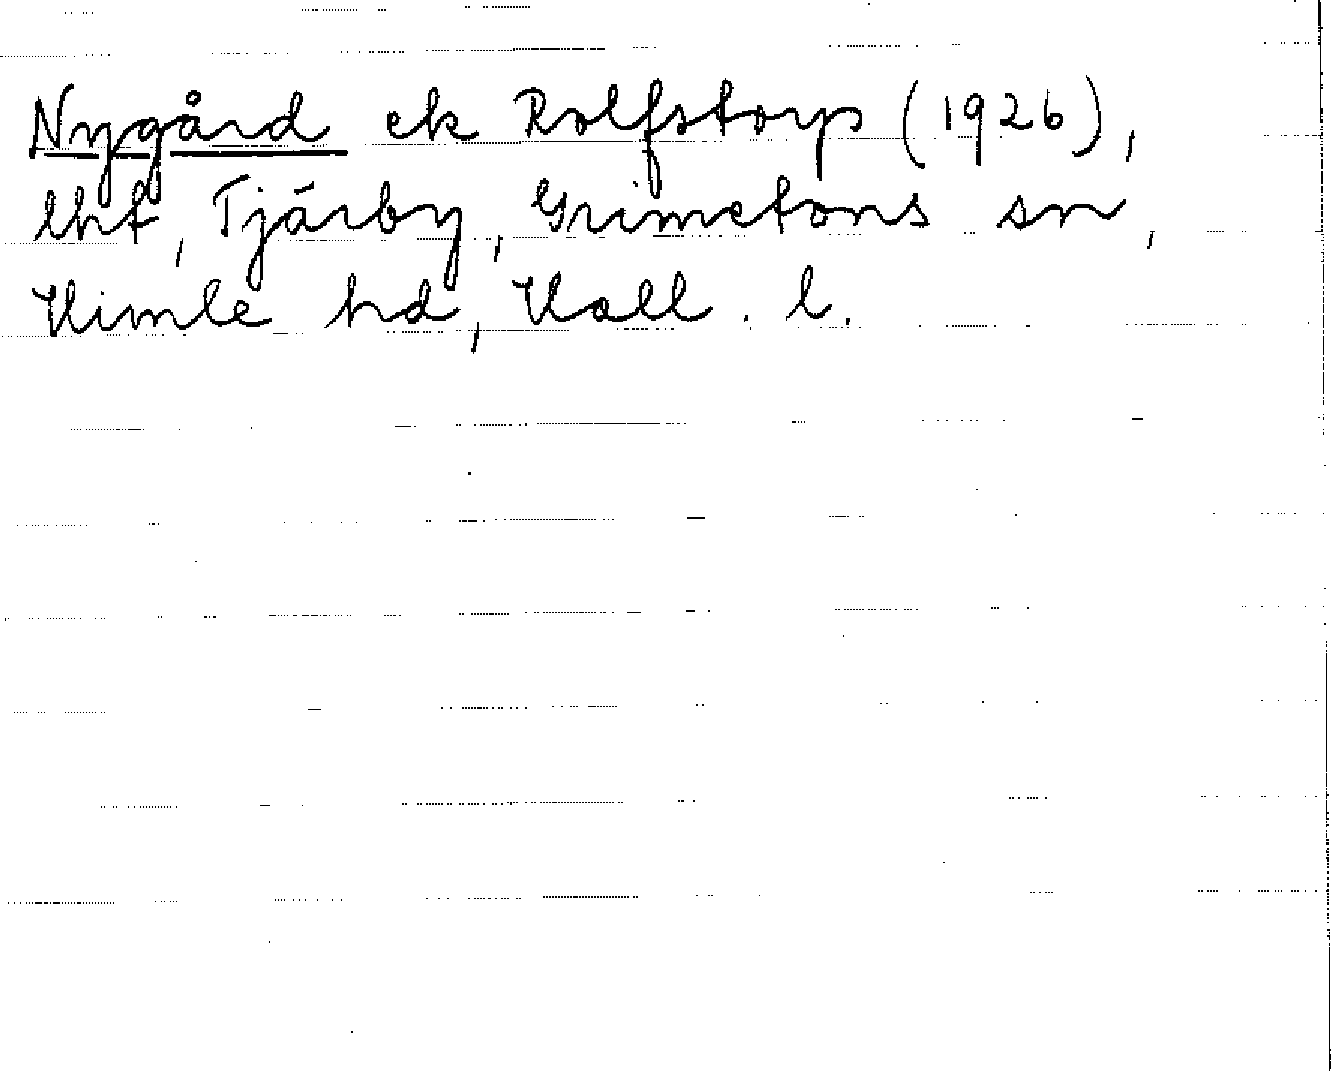 Nygård ek Rolfstorps (1926),
lht, Tjärby, Grimetons sn,
Himle hd, Hall. l.